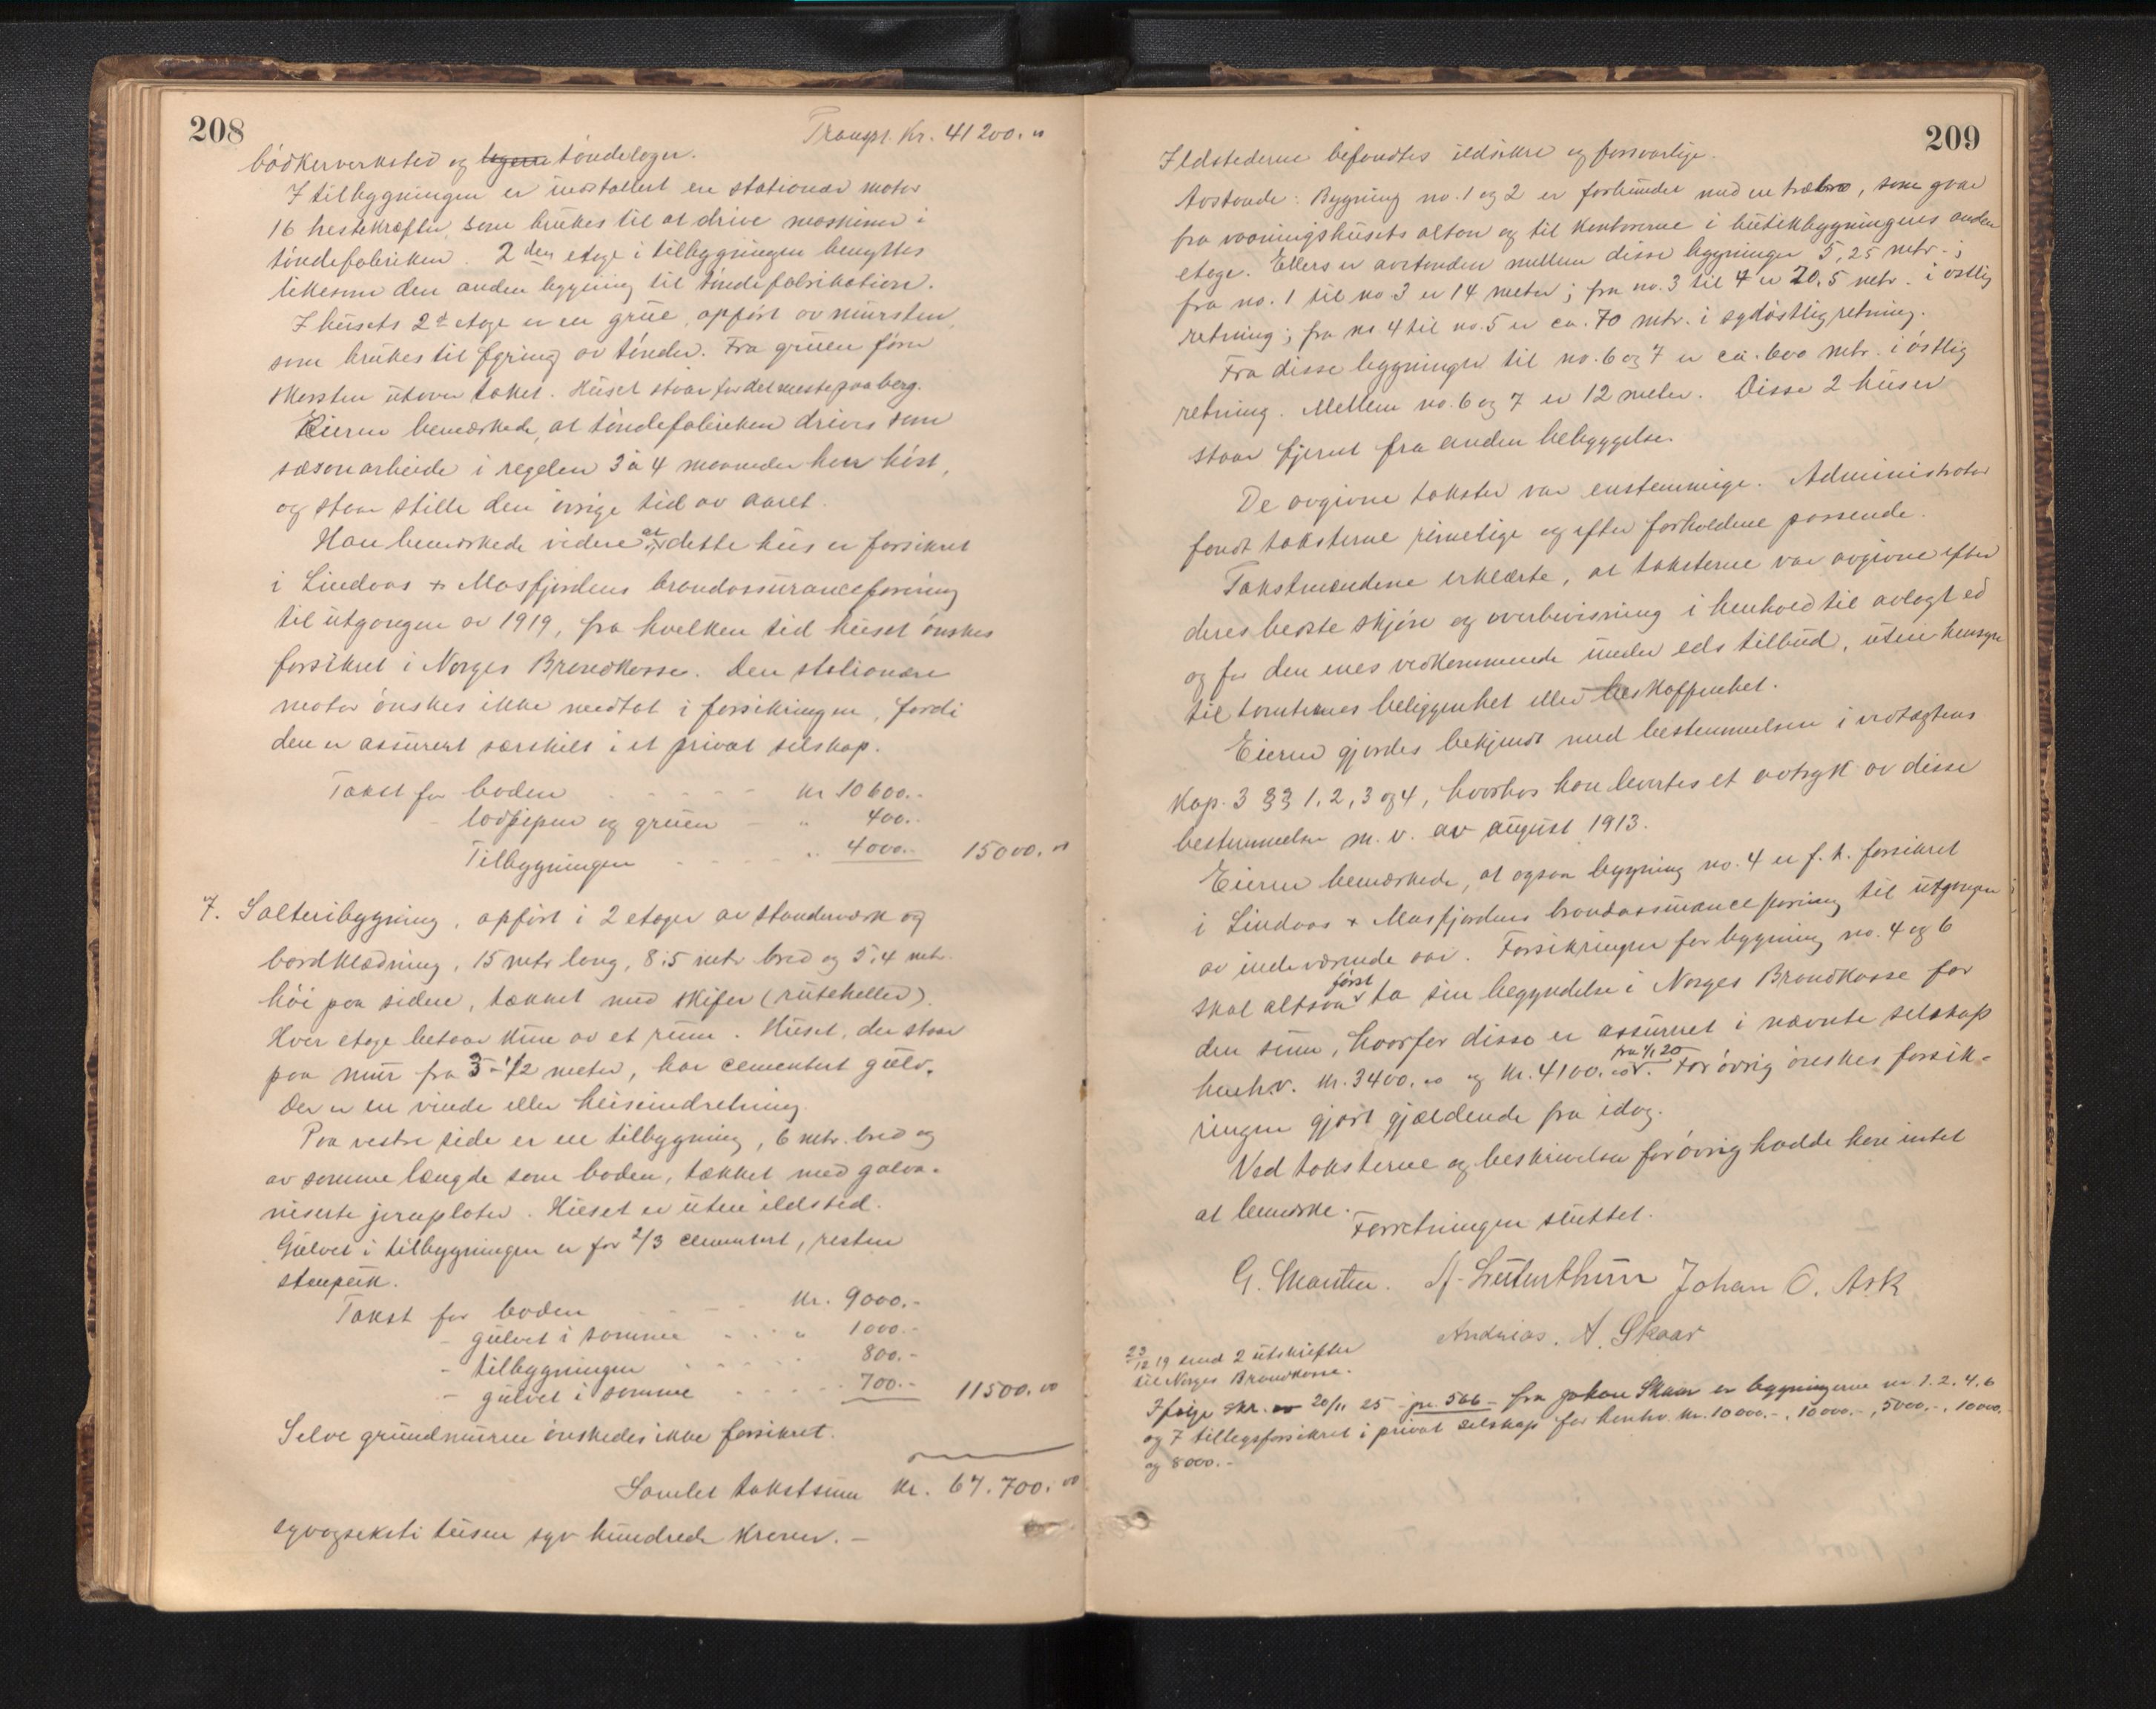 208
Transp. Kr. 41200.00
bødkerverksted og tøndelager.
I tilbygningen er installert en stationær motor
16 hestekræfter, som brukes til at drive maskiner i
tøndefabriken. 2den etage i tilbygningen benyttes
likesom den anden bygning til tøndefabrikation.
I husets 2d etage er en grue, opført av mursten,
som brukes til fyring av tønder. Fra gruen fører
skorsten utover taket. Huset staar for det meste paa berg.
Eieren bemerkede, at tøndefabriken drives som
sæsonarbeide i regelen 3 a 4 maaneder hver høst,
og staar stille den øvrige tid av aaret.
Han bemerkede videre at dette hus er forsikret
i Lindaas & Masfjordens brandassuranceforening
til utgangen av 1919, fra hvilken tid huset ønskes
forsikret i Norges Brandkasse. Den stationære
motor ønskes ikke medtat i forsikringen, fordi
den er assurert særskilt i et privat selskap.
Takst for boden - - - - kr 10600.-
- lodpipen og gruen - " 400.-
Tilbygningen - - - - " 4000.- 15000.00
7. Salteribygning, opført i 2 etager av stenderverk og
bordklædning, 15 mtr lang, 8.5 mtr bred og 5.4 mtr.
høi paa siden, tækket med skifer (rutheller).
Hver etage bestaar kun av et rum. Huset, der staar
paa mur fra 3 - 1/2 meter, har cementert gulv.
Der er en vinde eller heiseindretning.
Paa vestre side er en tilbygning, 6 mtr. bred og
av samme længde som boden, tækket med galva-
niserte jernplater. Huset er uten ildsted.
Gulvet i tilbygningen er for 2/3 cementert, resten
Takst for boden - - - Kr. 9000.-
- gulvet i samme - - - " 1000.-
- tilbygningen - - - - 800.-
- gulvet i samme - - - - 700.- 11500.00
Selve grundmuren ønskedes ikke forsikret.
Samlet takstsum kr. 67.700.00
syvogseksti tusen syv hundrede kroner. -
209
Ildstederne befandtes ildsikre og forsvarlige.
Avstande: Bygning no. 1 og 2 er forbundet med en træbro, som gaar
fra vaaningshusets altan og til kontorerne i butikbygningens anden
etage. Ellers er avstanden mellem disse bygninger 5,25 mtr.;
fra no. 1 til no 3 er 14 meter; fra no. 3 til 4 er 20.5 mtr. i østlig
retning; fra no. 4 til no. 5 er ca. 70 mtr. i sydøstlig retning.
Fra disse bygninger til no. 6 og 7 er ca. 600 mtr. i østlig
retning. Mellem no. 6 og 7 er 12 meter. Disse 2 huser
staar fjernt fra anden bebyggelse.
De avgivne takster var enstemmige. Administrator
fandt taksterne rimelige og efter forholdene passende.
Takstmændene erklærte, at taksterne var avgivne efter
deres bedste skjøn og overbevisning i henhold til avlagt ed
og for den enes vedkommende under eds tilbud, uten hensyn
til tomternes beliggenhet eller beskaffenhet.
Eieren gjordes bekjendt med bestemmelsen i vedtægtens
Kap. 3 §§ 1, 2, 3 og 4, hvorhos han levertes et avtryk av disse
bestemmelser m. v. av august 1913.
Eieren bemerkede, at ogsaa bygning no. 4 er f. t. forsikret
i Lindaas & Masfjordens brandassuranceforening til utgangen
av indeværende aar. Forsikringen for bygning no. 4 og 6
skal altsaa først ta sin begyndelse i Norges Brandkasse for
den sum, hvorfor disse er assurert i nævnte selskap
henhv. kr. 3400.00 og kr. 4100.00 fra 1/1 20. For øvrig ønskes forsik-
ringen gjort gjældende fra idag.
Ved taksterne og beskrivelsen forøvrig hadde han intet
at bemerke.
Forretningen sluttet.
Johan O. Ask
Andreas. A. Skaar
23/12 19 send 2 utskrifter
til Norges Brandkasse.
Ifølge skr. av 20/11 25 - jnr. 566 - fra Johan Skaar er bygningerne nr. 1. 2. 4. 6
og 7 tillegsforsikret i privat selskap for henhv. kr. 10000.-, 10000.-, 5000.-, 10000.
og 8000.-